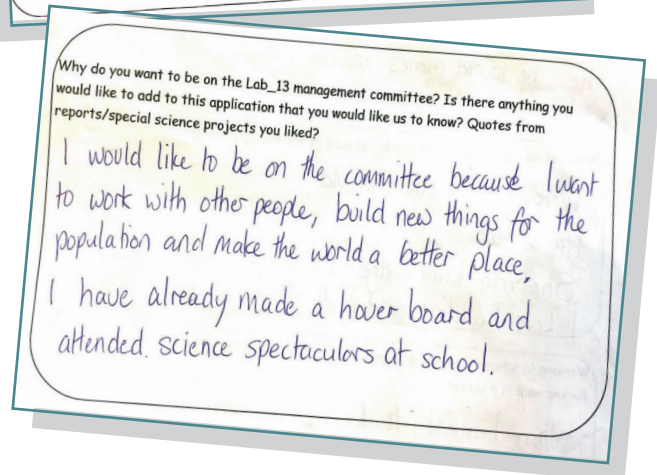 Why do you want to be on the Lab_13 management committee? Is there anything you
would like to add to this application that you would like us to know? Quotes from
reports/special science projects you liked?
I would like to be on the committee because I want
to work with other people, build new things for the
population and make the world a better place,
I have already made a hover board and
attended. science spectaculars at school.